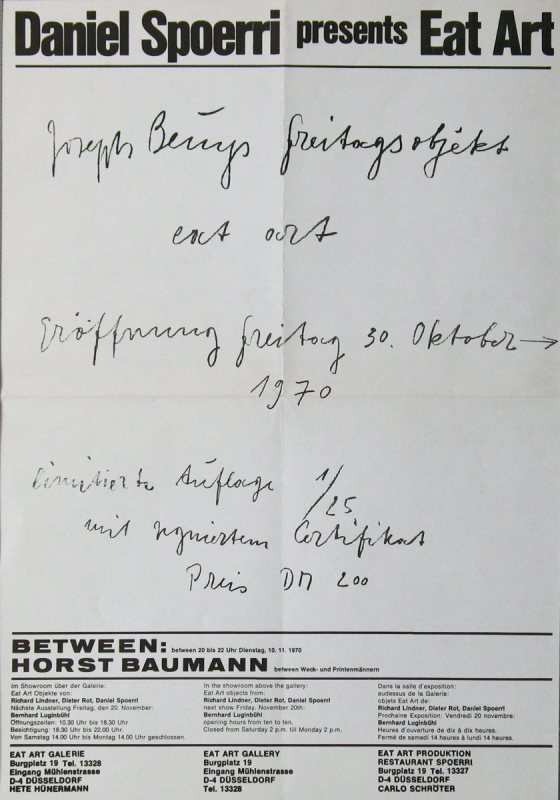 Daniel Spoerri presents Eat Art
Joseph Beuys freitagsobjekt
eat art
Eröffnung freitag 30. Oktober →
1970
limitierte Auflage 1/25
mit signiertem Certifikat
Preis DM 200
BETWEEN: between 20 bis 22 Uhr Dienstag, 10. 11. 1970
HORST BAUMANN between Weck- und Printenmännern
Im Showroom über der Galerie:
Eat Art Objekte von:
Richard Lindner, Dieter Rot, Daniel Spoerri
Nächste Ausstellung Freitag, den 20. November:
Bernhard Luginbühl
Öffnungszeiten: 10.30 Uhr bis 18.30 Uhr
Besichtigung: 18.30 Uhr bis 22.00 Uhr.
Von Samstag 14.00 Uhr bis Montag 14.00 Uhr geschlossen.
In the showroom above the gallery:
Eat Art objects from:
Richard Lindner, Dieter Rot, Daniel Spoerri
next show Friday, November 20th:
Bernhard Luginbühl
opening hours from ten to ten.
Closed from Saturday 2 p.m. till Monday 2 p.m.
Dans la salle d'exposition:
audessus de la Galerie:
objets Eat Art de:
Richard Lindner, Dieter Rot, Daniel Spoerri
Prochaine Exposition: Vendredi 20 novembre:
Bernhard Luginbühl
Heures d'ouverture de dix à dix heures.
Fermé de samedi 14 heures à lundi 14 heures.
EAT ART GALERIE
Burgplatz 19 Tel. 13328
Eingang Mühlenstrasse
D-4 DÜSSELDORF
HETE HÜNERMANN
EAT ART GALLERY
Burgplatz 19
Eingang Mühlenstrasse
D-4 DÜSSELDORF
Tel. 13328
EAT ART PRODUKTION
RESTAURANT SPOERRI
Burgplatz 19 Tel. 13327
D-4 DÜSSELDORF
CARLO SCHRÖTER